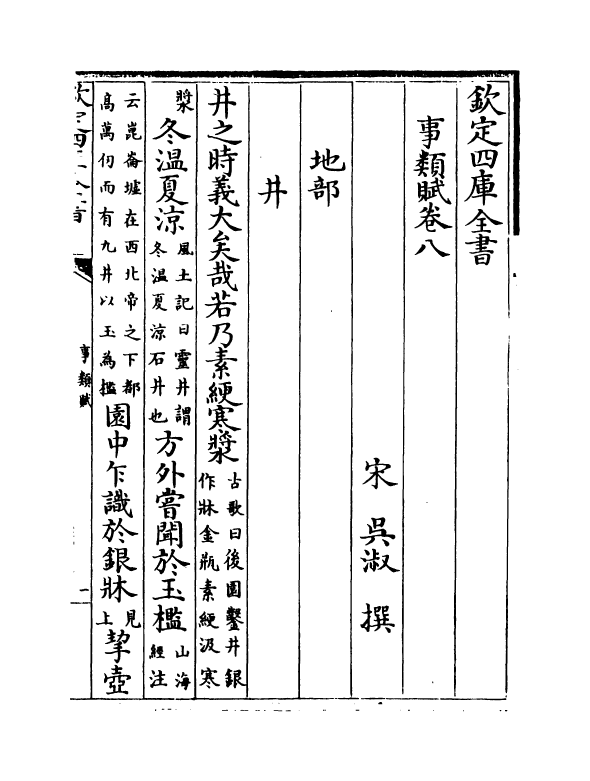 欽定四庫全書
事類賦卷八
宋 吳淑 撰
地部
井
井之時義大矣哉若乃素綆寒漿古歌曰後園鑿井銀作牀金瓶素綆汲寒
漿冬温夏涼風土記曰靈井謂冬温夏涼石井也方外嘗聞於玉檻山海經注
云崑崙墟在西北帝之下都高萬仞而有九井以玉為檻園中乍識於銀牀見上挈壺
欽定四庫全書
事類賦
一